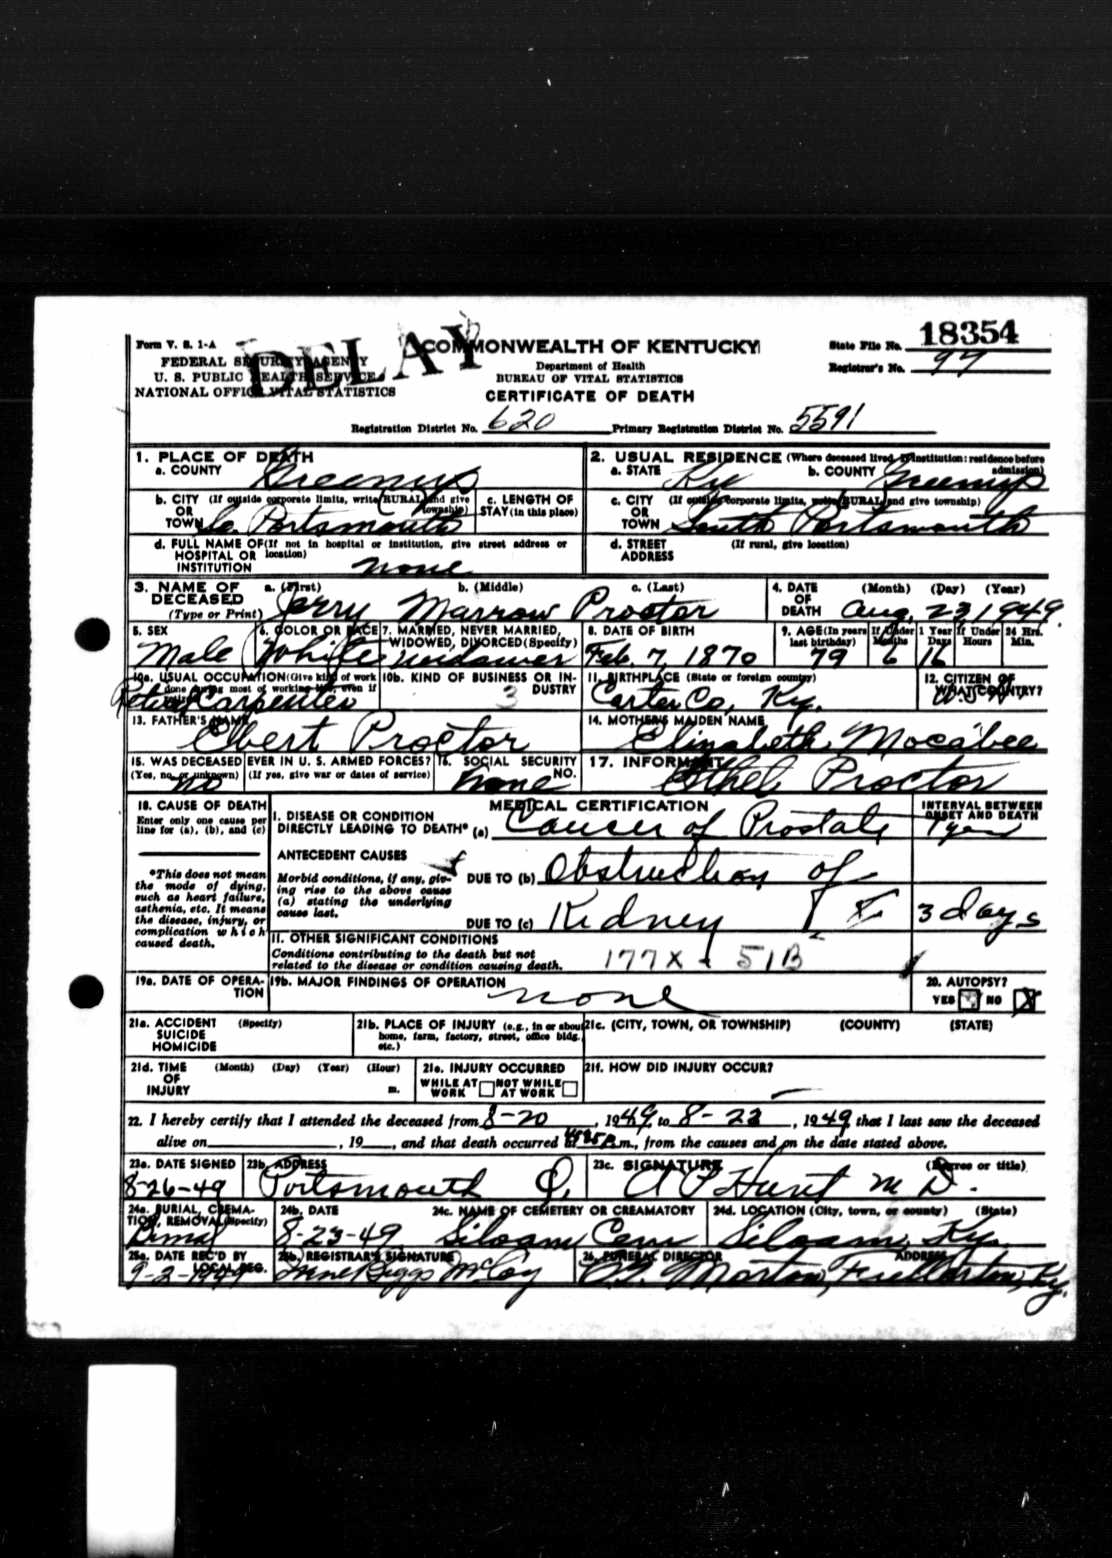 DELAY
Form V. S. 1-A
FEDERAL SECURITY AGENCY
U. S. PUBLIC HEALTH SERVICE
NATIONAL OFFICE VITAL STATISTICS
COMMONWEALTH OF KENTUCKY
Department of Health
BUREAU OF VITAL STATISTICS
CERTIFICATE OF DEATH
State File No. 18354
Registrar's No. 97
Registration District No. 620 Primary Registration District No. 5591
1. PLACE OF DEATH
a. COUNTY Greenup
b. CITY (If outside corporate limits, write RURAL and give township)
OR
TOWN So. Portsmouth
c. LENGTH OF STAY (in this place)
d. FULL NAME OF (If not in hospital or institution, give street address or location)
HOSPITAL OR
INSTITUTION none
2. USUAL RESIDENCE (Where deceased lived. If institution: residence before admission)
a. STATE Ky b. COUNTY Greenup
c. CITY (If outside corporate limits, write RURAL and give township)
OR
TOWN South Portsmouth
d. STREET ADDRESS (If rural, give location)
3. NAME OF DECEASED (Type or Print)
a. (First) b. (Middle) c. (Last)
Jerry Marrow Proctor
4. DATE OF DEATH (Month) (Day) (Year)
Aug. 23, 1949.
5. SEX
Male
6. COLOR OR RACE
White
7. MARRIED, NEVER MARRIED, WIDOWED, DIVORCED (Specify)
Widower
8. DATE OF BIRTH
Feb. 7, 1870
9. AGE (In years last birthday) If Under 1 Year Months Days If Under 24 Hrs. Hours Min.
79 6 16
10a. USUAL OCCUPATION (Give kind of work done during most of working life, even if retired)
Retired Carpenter
10b. KIND OF BUSINESS OR INDUSTRY
3
11. BIRTHPLACE (State or foreign country)
Carter Co, Ky.
12. CITIZEN OF WHAT COUNTRY?
13. FATHER'S NAME
Elbert Proctor
14. MOTHER'S MAIDEN NAME
Elizabeth Mocabee
15. WAS DECEASED EVER IN U. S. ARMED FORCES?
(Yes, no, or unknown) (If yes, give war or dates of service)
no
16. SOCIAL SECURITY NO.
none
17. INFORMANT
Ethel Proctor
18. CAUSE OF DEATH
Enter only one cause per line for (a), (b), and (c)
*This does not mean the mode of dying, such as heart failure, asthenia, etc. It means the disease, injury, or complication which caused death.
MEDICAL CERTIFICATION
INTERVAL BETWEEN ONSET AND DEATH
I. DISEASE OR CONDITION
DIRECTLY LEADING TO DEATH* (a) Cancer of Prostate 1 year
ANTECEDENT CAUSES
Morbid conditions, if any, giving rise to the above cause (a) stating the underlying cause last.
DUE TO (b) Obstruction of
DUE TO (c) Kidney 3 days
II. OTHER SIGNIFICANT CONDITIONS
Conditions contributing to the death but not related to the disease or condition causing death.
177X 51B
19a. DATE OF OPERATION
19b. MAJOR FINDINGS OF OPERATION
none
20. AUTOPSY?
YES NO X
21a. ACCIDENT SUICIDE HOMICIDE (Specify)
21b. PLACE OF INJURY (e.g., in or about home, farm, factory, street, office bldg. etc.)
21c. (CITY, TOWN, OR TOWNSHIP) (COUNTY) (STATE)
21d. TIME OF INJURY (Month) (Day) (Year) (Hour) m.
21e. INJURY OCCURRED
WHILE AT WORK NOT WHILE AT WORK
21f. HOW DID INJURY OCCUR?
22. I hereby certify that I attended the deceased from 8-20, 1949, to 8-23, 1949 that I last saw the deceased
alive on , 19 , and that death occurred at m., from the causes and on the date stated above.
23a. DATE SIGNED
8-26-49
23b. ADDRESS
Portsmouth O.
23c. SIGNATURE (Degree or title)
A P Hunt M D.
24a. BURIAL, CREMATION, REMOVAL (Specify)
24b. DATE
8-23-49
24c. NAME OF CEMETERY OR CREAMATORY
Siloam Cem
24d. LOCATION (City, town, or county) (State)
Siloam, Ky.
25a. DATE REC'D BY LOCAL REG.
9-2-1949
25b. REGISTRAR'S SIGNATURE
Irene Biggs McCoy
26. FUNERAL DIRECTOR ADDRESS
Morton, Fullerton, Ky.